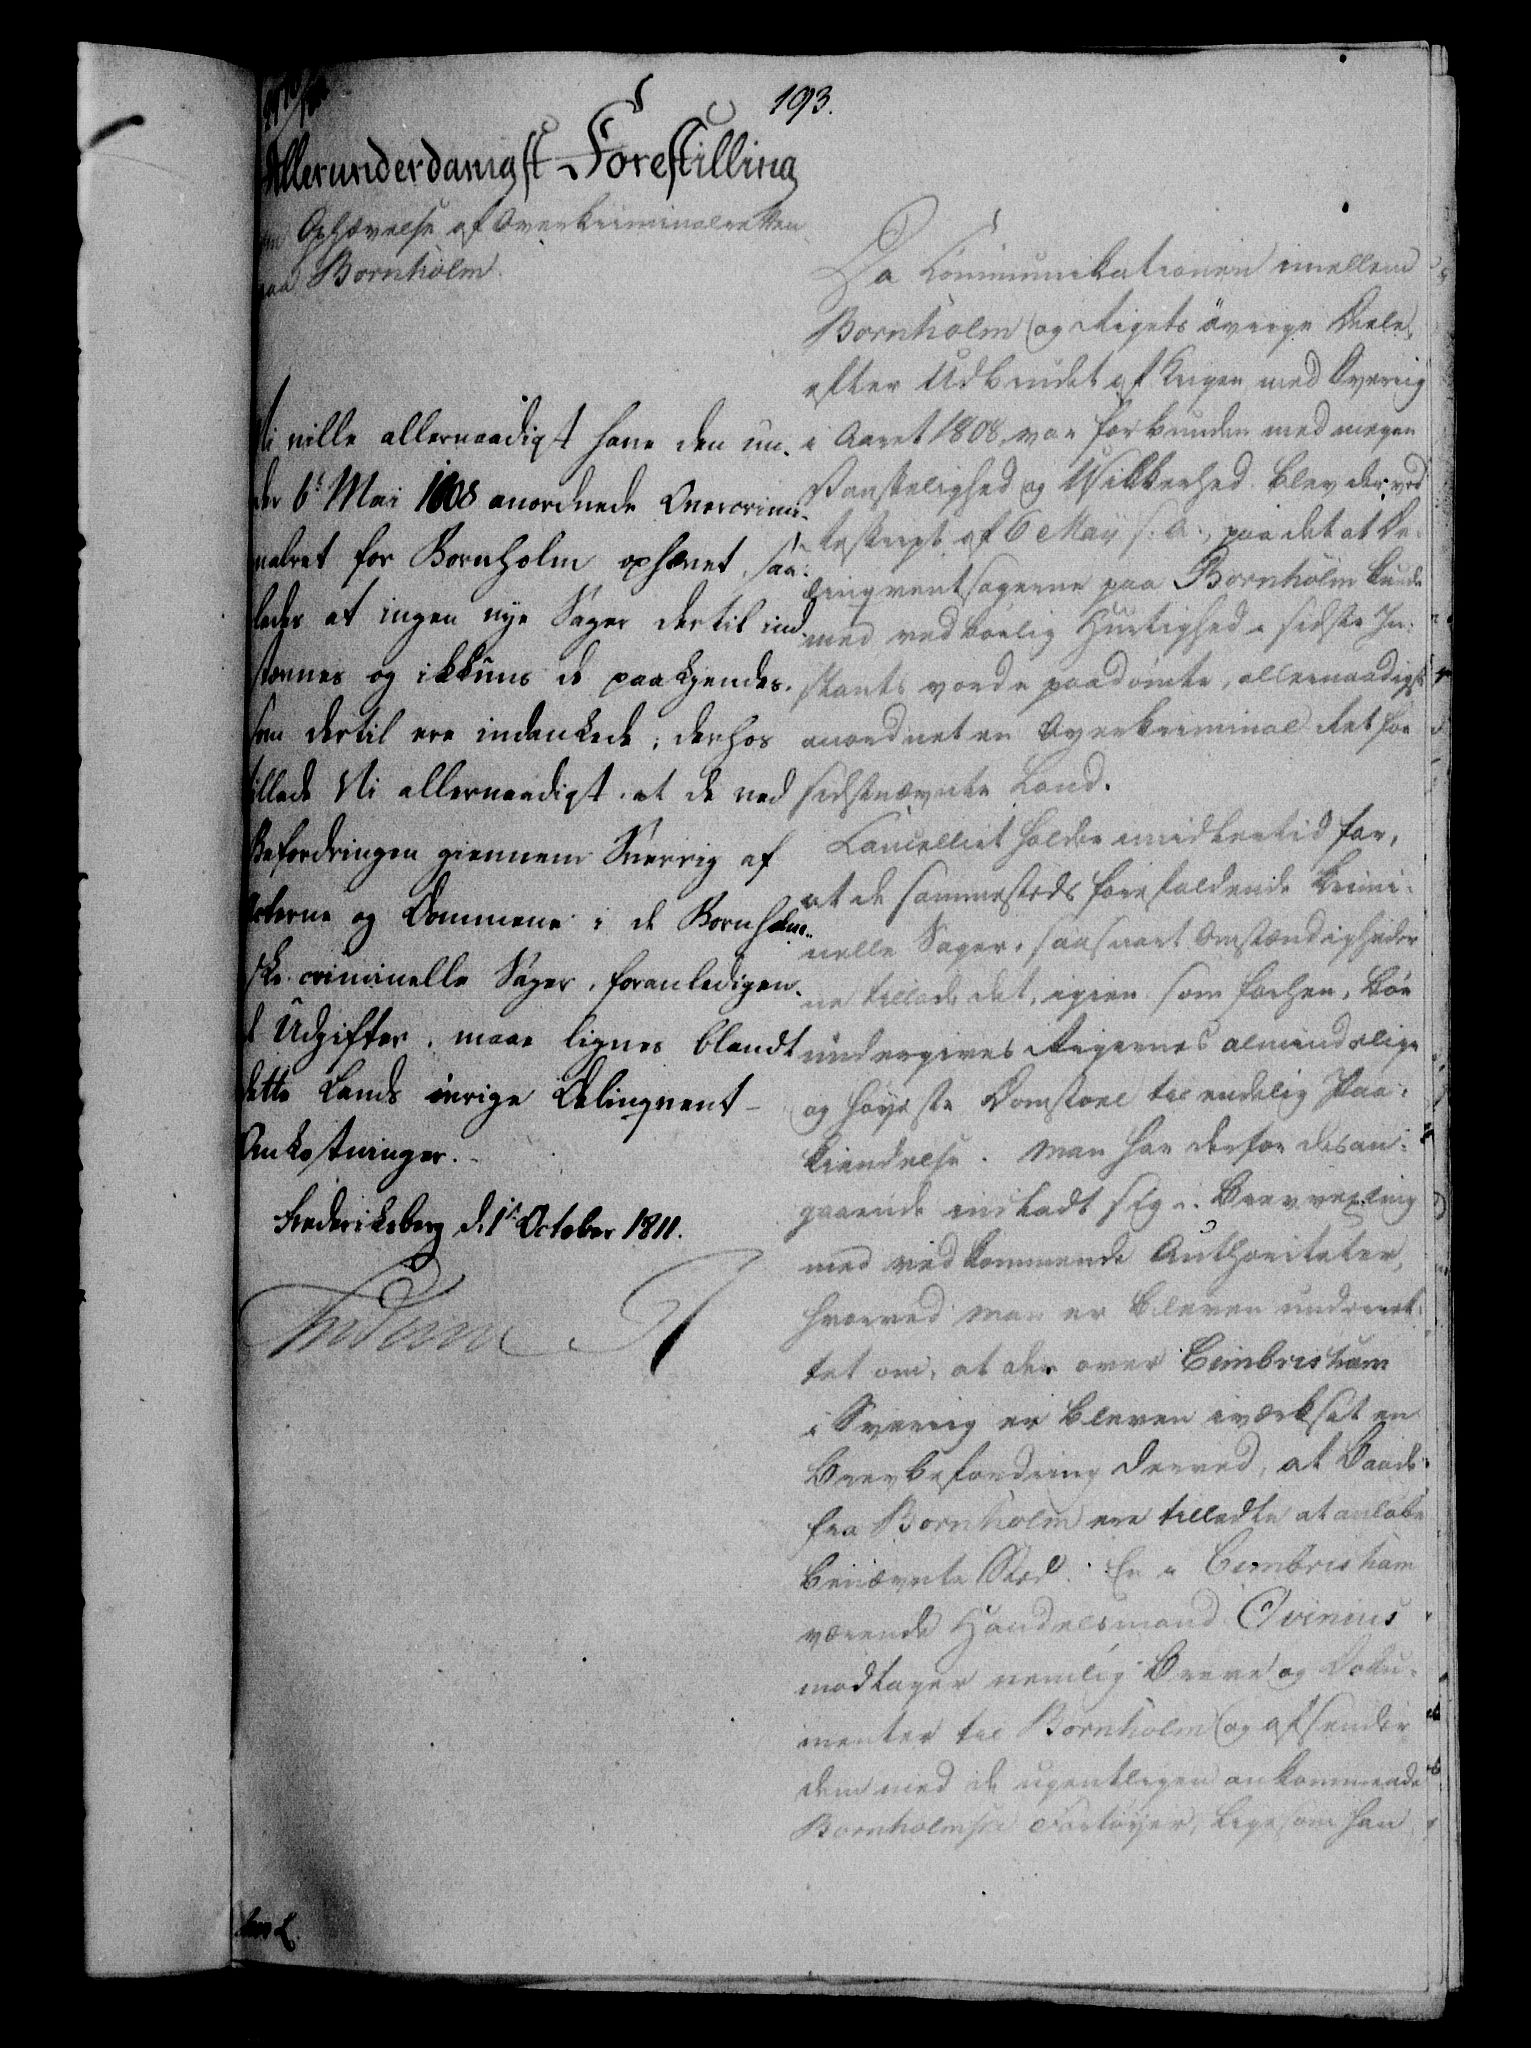 193.
Allerunderdanigst Forestilling
om Ophævelse af Overkriminalretten
paa Bornholm.
Vi ville allernaadigst have den un-
der 6te Mai 1808 anordnede Overcrimi-
nalret for Bornholm ophævet, saa-
ledes at ingen nye Sager dertil ind-
stævnes og ikkuns de paakjendes,
som dertil ere indankede; derhos
tillade Vi allernaadigst at de ved
Befordringen giennem Sverrig af
Acterne og Dommene i de Bornholm-
ske criminelle Sager, foranledigen-
de Udgifter, maae lignes blandt
dette Lands øvrige Delinqvent-
Omkostninger.
Frederiksberg d. 1ste October 1811.
Frederik R
Da Kommunikationen imellem
Bornholm og Rigets øvrige Deele,
efter Udbrudet af Krigen med Sverrig
i Aaret 1808, var forbunden med megen
Vanskelighed og Usikkerhed, blev der, ved
Reskript af 6 May s. A., paa det at De-
linqventsagerne paa Bornholm kunde
med vedbørlig Hurtighed i sidste In-
stants vorde paadømte, allernaadigst
anordnet en Overkriminal Ret for
sidstnævnte Land.
Cancelliet holder imidlertid for,
at de sammesteds forefaldende krimi-
nelle Sager, saasnart Omstændigheder-
ne tillade det, igien som forhen, bør
undergives Rigernes almindelige
og høyeste Domstoel til endelig Paa-
kiendelse. Man har derfor desan-
gaaende indladt sig i Brevvexling
med vedkommende Authoriteter,
hvorved man er bleven underret-
tet om, at der over Cimbrisham
i Sverrig er bleven iværksat en
Brevbefordring derved, at Baade
fra Bornholm ere tilladte at anløbe
benævnte Sted. En i Cimbrisham
værende Handelsmand Qvinius
modtager nemlig Breve og Doku-
menter til Bornholm og afsender
dem med de ugentligen ankommende
Bornholmske Fartøyer, ligesom han